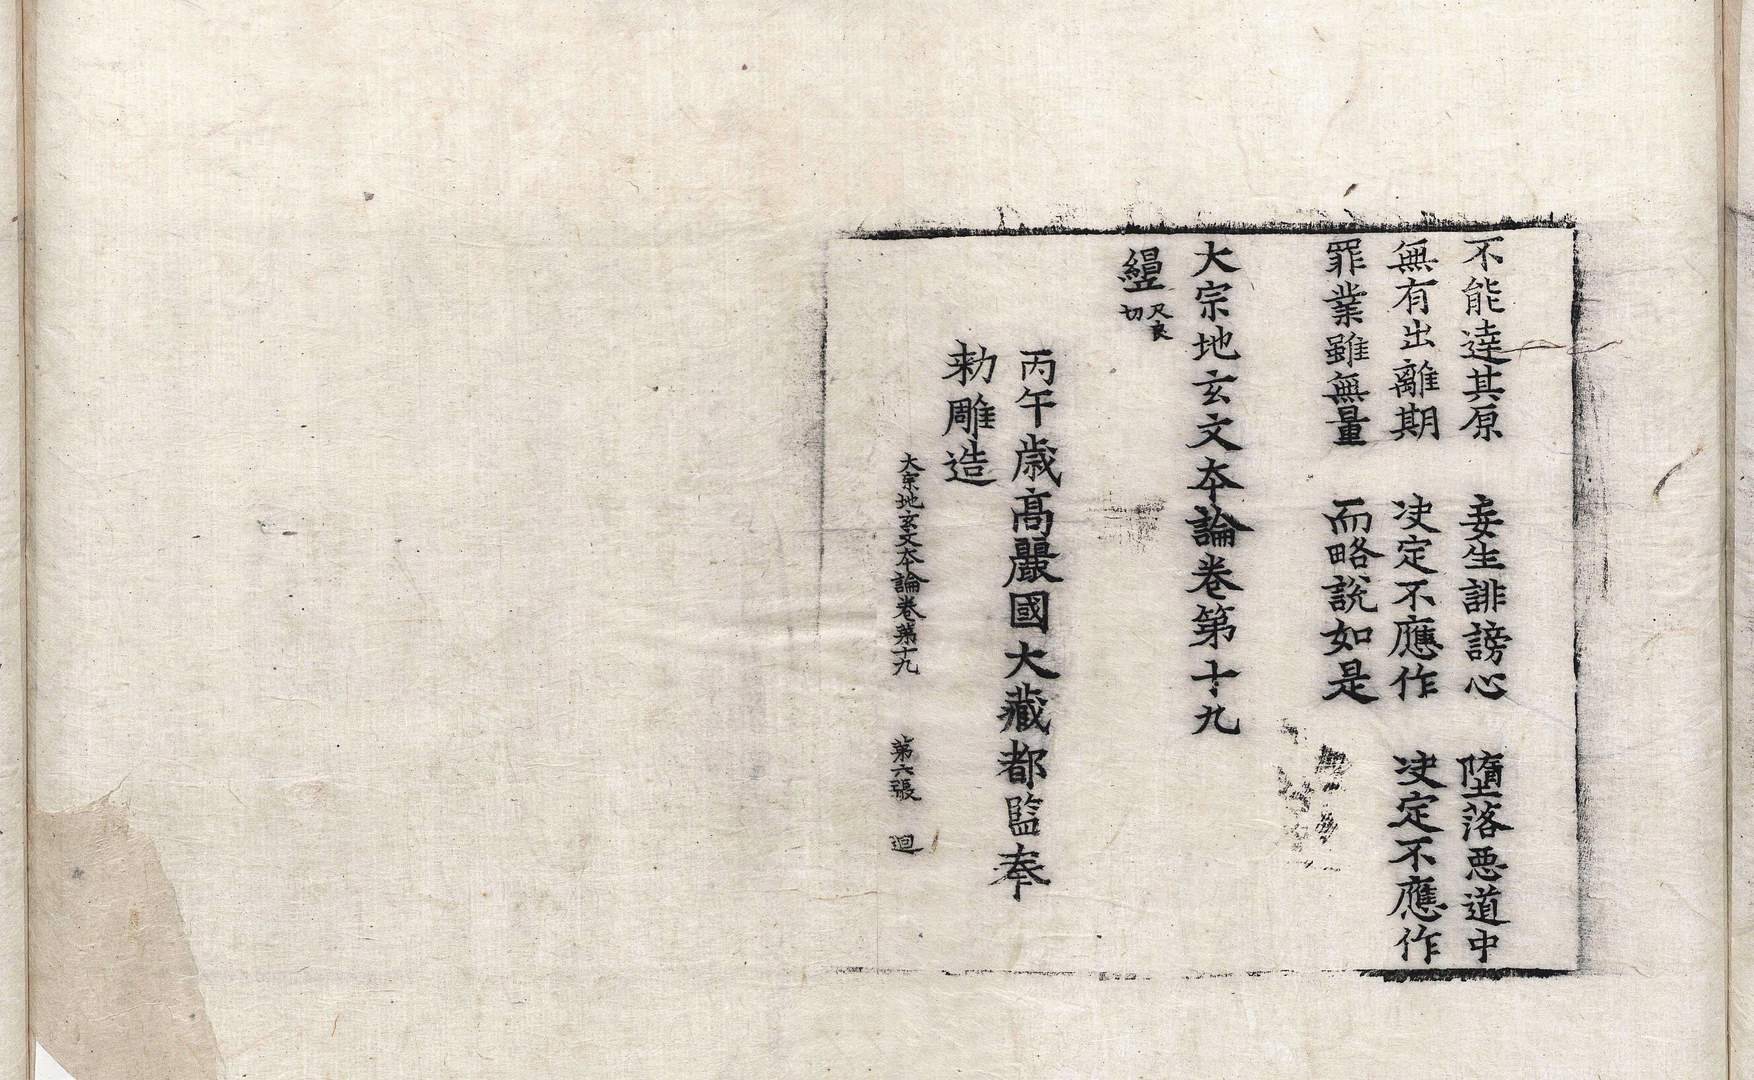 不能達其原 妄生誹謗心 墮落惡道中
無有出離期 決定不應作 決定不應作
罪業雖無量 而略說如是
大宗地玄文夲論卷第十九
尺良切
丙午歲高麗國大藏都監奉
勅雕造
大宗地玄文夲論卷第十九 第六張 迴